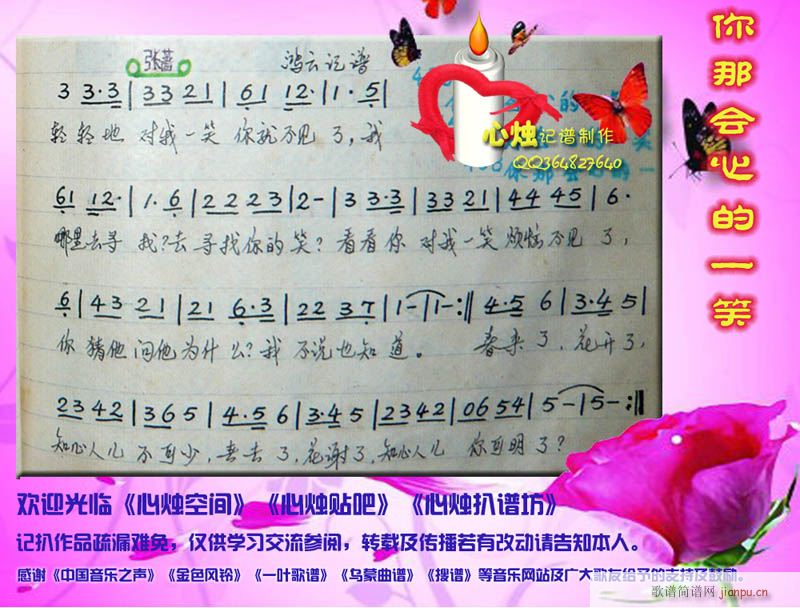 你那会心的一笑
张蔷
鸿云记谱
心烛记谱制作
QQ364827640
3 3·3 | 3 3 2 1 | 6 1 1 2· | 1· 5 |
轻轻地 对我一笑 你就不见了,我
6 1 1 2· | 1· 6 | 2 2 2 3 | 2 - | 3 3·3 | 3 3 2 1 | 4 4 4 5 | 6·
哪里去寻 我?去寻找你的笑?看看你 对我一笑 烦恼不见了,
6 | 4 3 2 1 | 2 1 6·3 | 2 2 3 7 | 1 - | 1 - :‖ 4·5 6 | 3·4 5 |
你 猜他问他为什么?我不说也知道。 春来了,花开了,
2 3 4 2 | 3 6 5 | 4·5 6 | 3·4 5 | 2 3 4 2 | 0 6 5 4 | 5 - | 5 - :‖
知心人儿 不可少,春去了,花谢了,知心人儿 你可明了?
欢迎光临《心烛空间》《心烛贴吧》《心烛扒谱坊》
记扒作品疏漏难免,仅供学习交流参阅,转载及传播若有改动请告知本人。
感谢《中国音乐之声》《金色风铃》《一叶歌谱》《乌蒙曲谱》《搜谱》等音乐网站及广大歌友给予的支持及鼓励。
歌谱简谱网 jianpu.cn